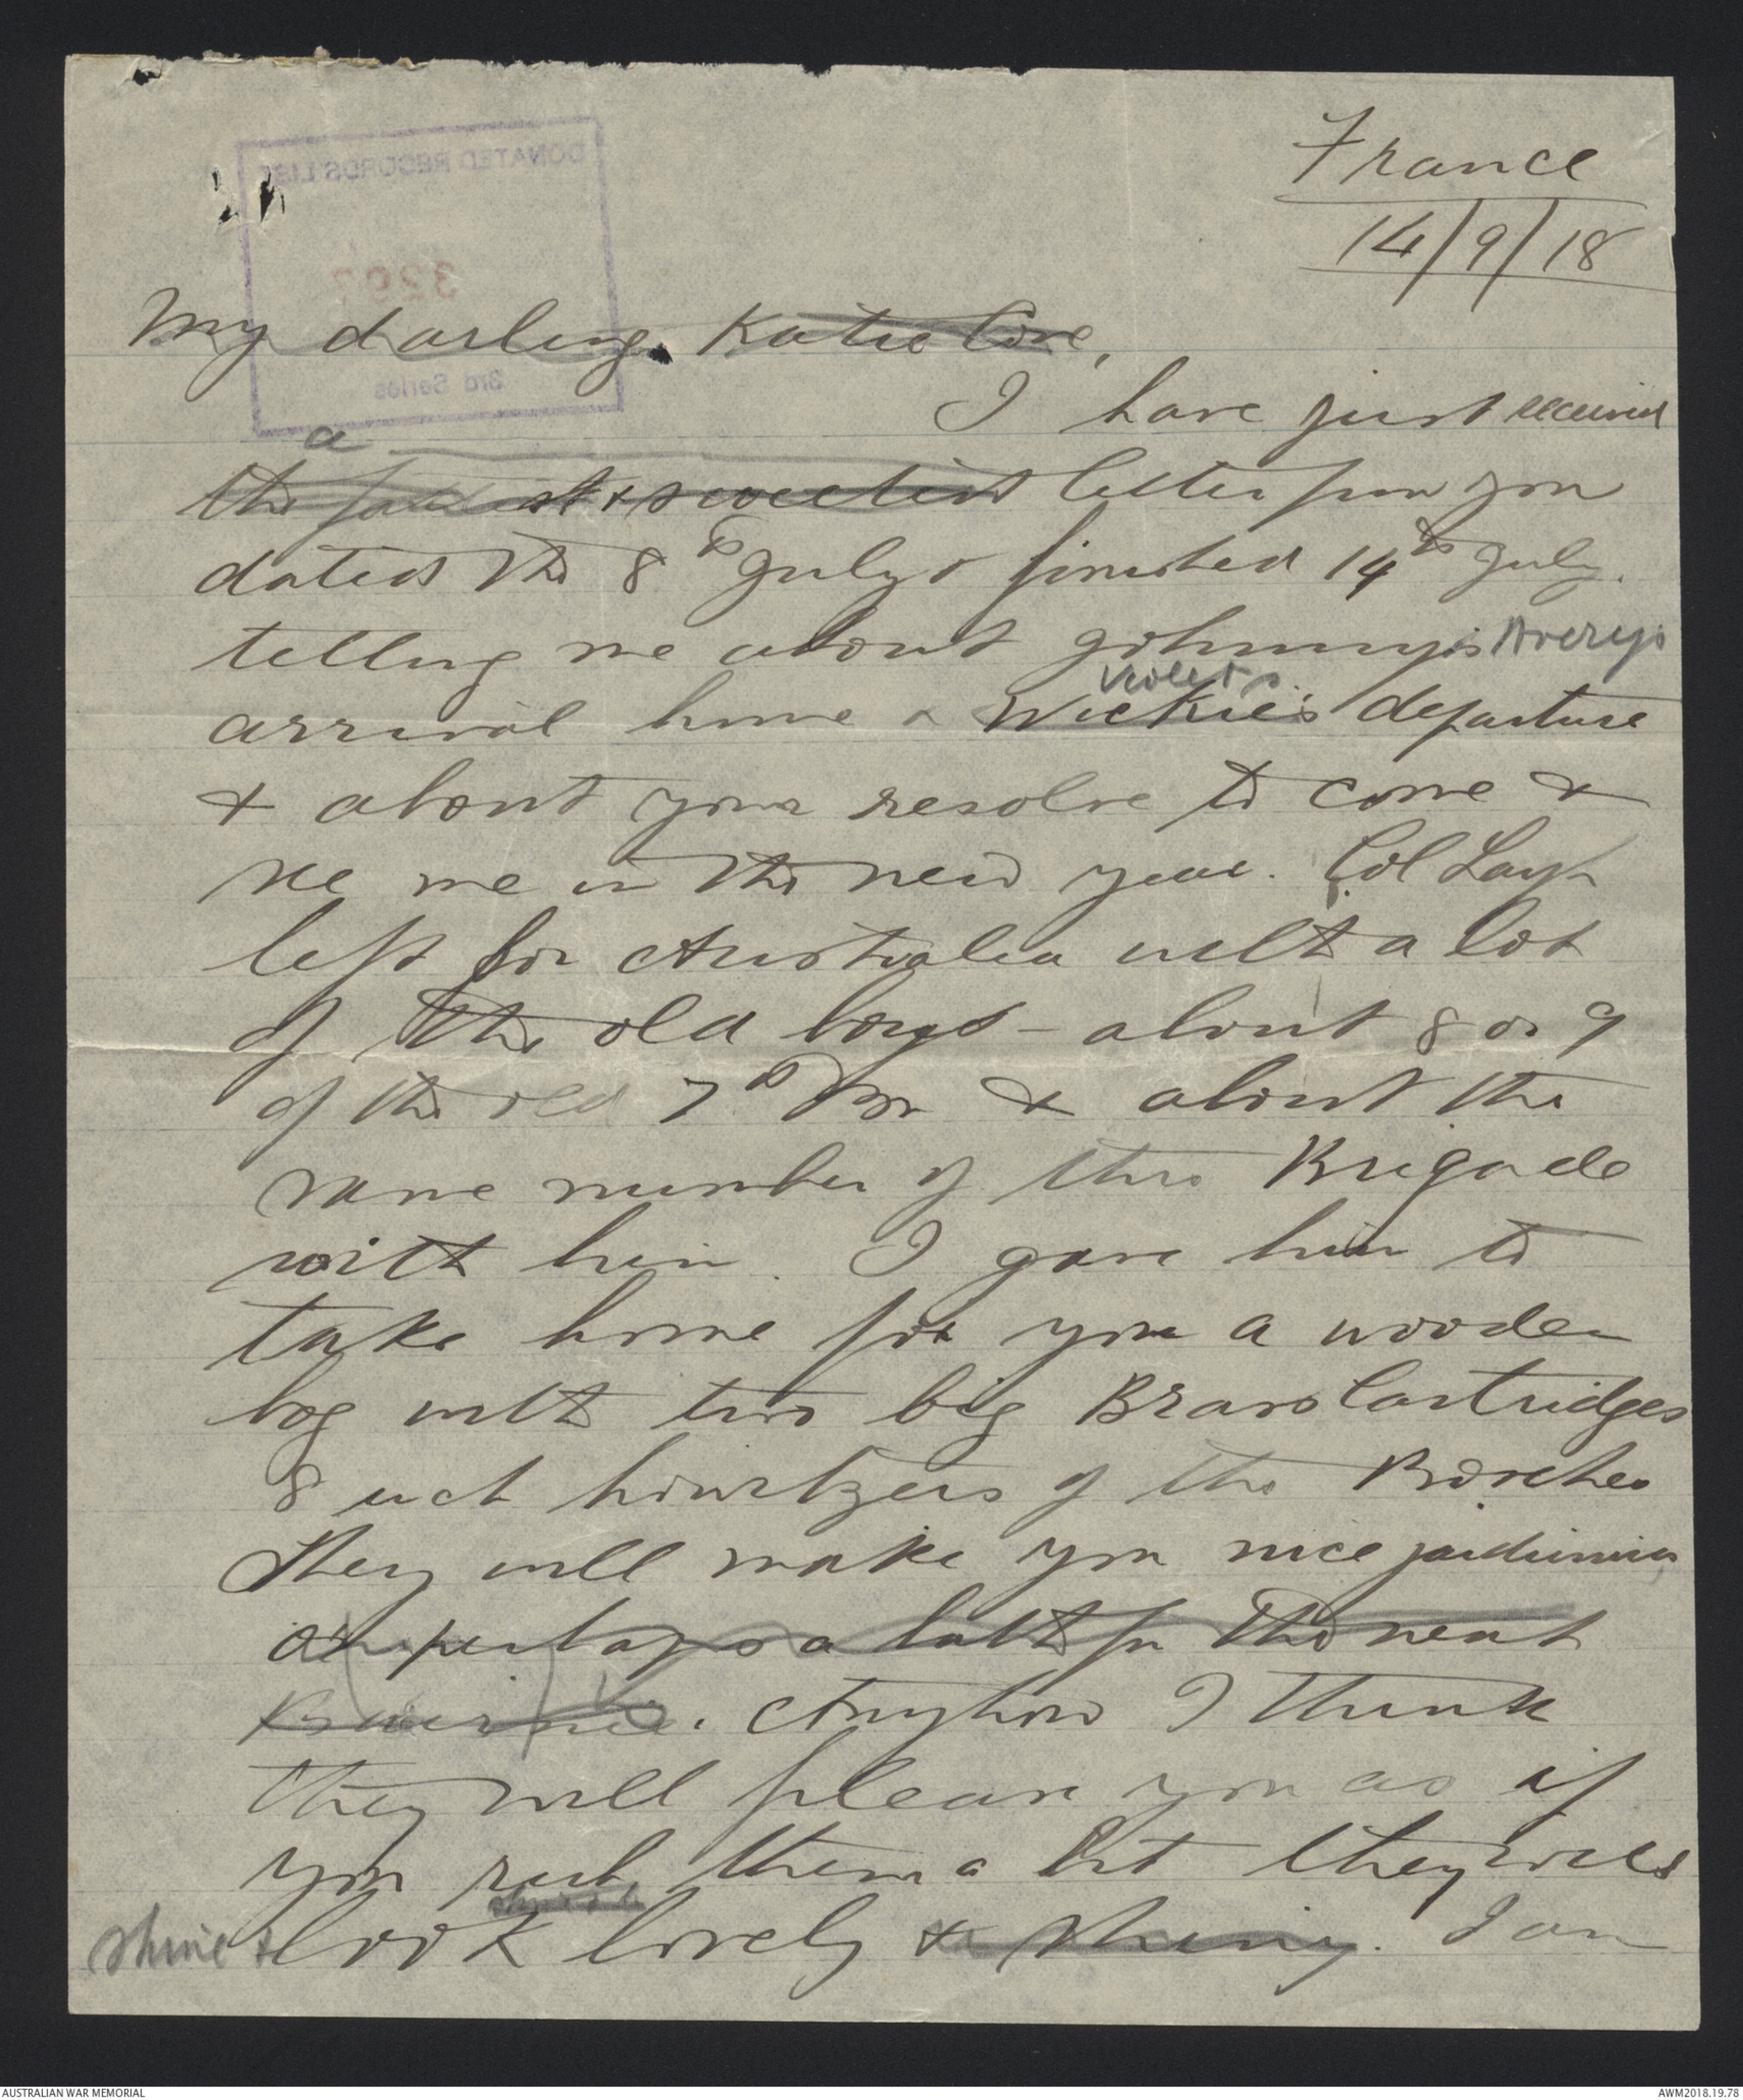 DONATED RECORDS LIST
3297
3rd Series
France
14/9/18
My darling Katie Love,
I have just received
a
the & sweetest letter from you
dated the 8th July & finished 14th July.
telling me about Johnny's Avery's
Violet's
arrival home & Wickie's departure
& about your resolve to come &
see me in the new year. Col Layh
left for Australia with a lot
of the old boys - about 8 or 9
of the old 7th Bn & about the
same number of this Brigade
with him. I gave him to
take home for you a wooden
box with two big Brass Cartridges
8 inch howitzers of the Bosches
They will make you nice jardinieres
or perhaps a bath for the next
. Anyhow I think
they will please you as if
you rub them a bit they will
shine & look lovely & shiny. I am
AUSTRALIAN WAR MEMORIAL
AWM2018.19.78